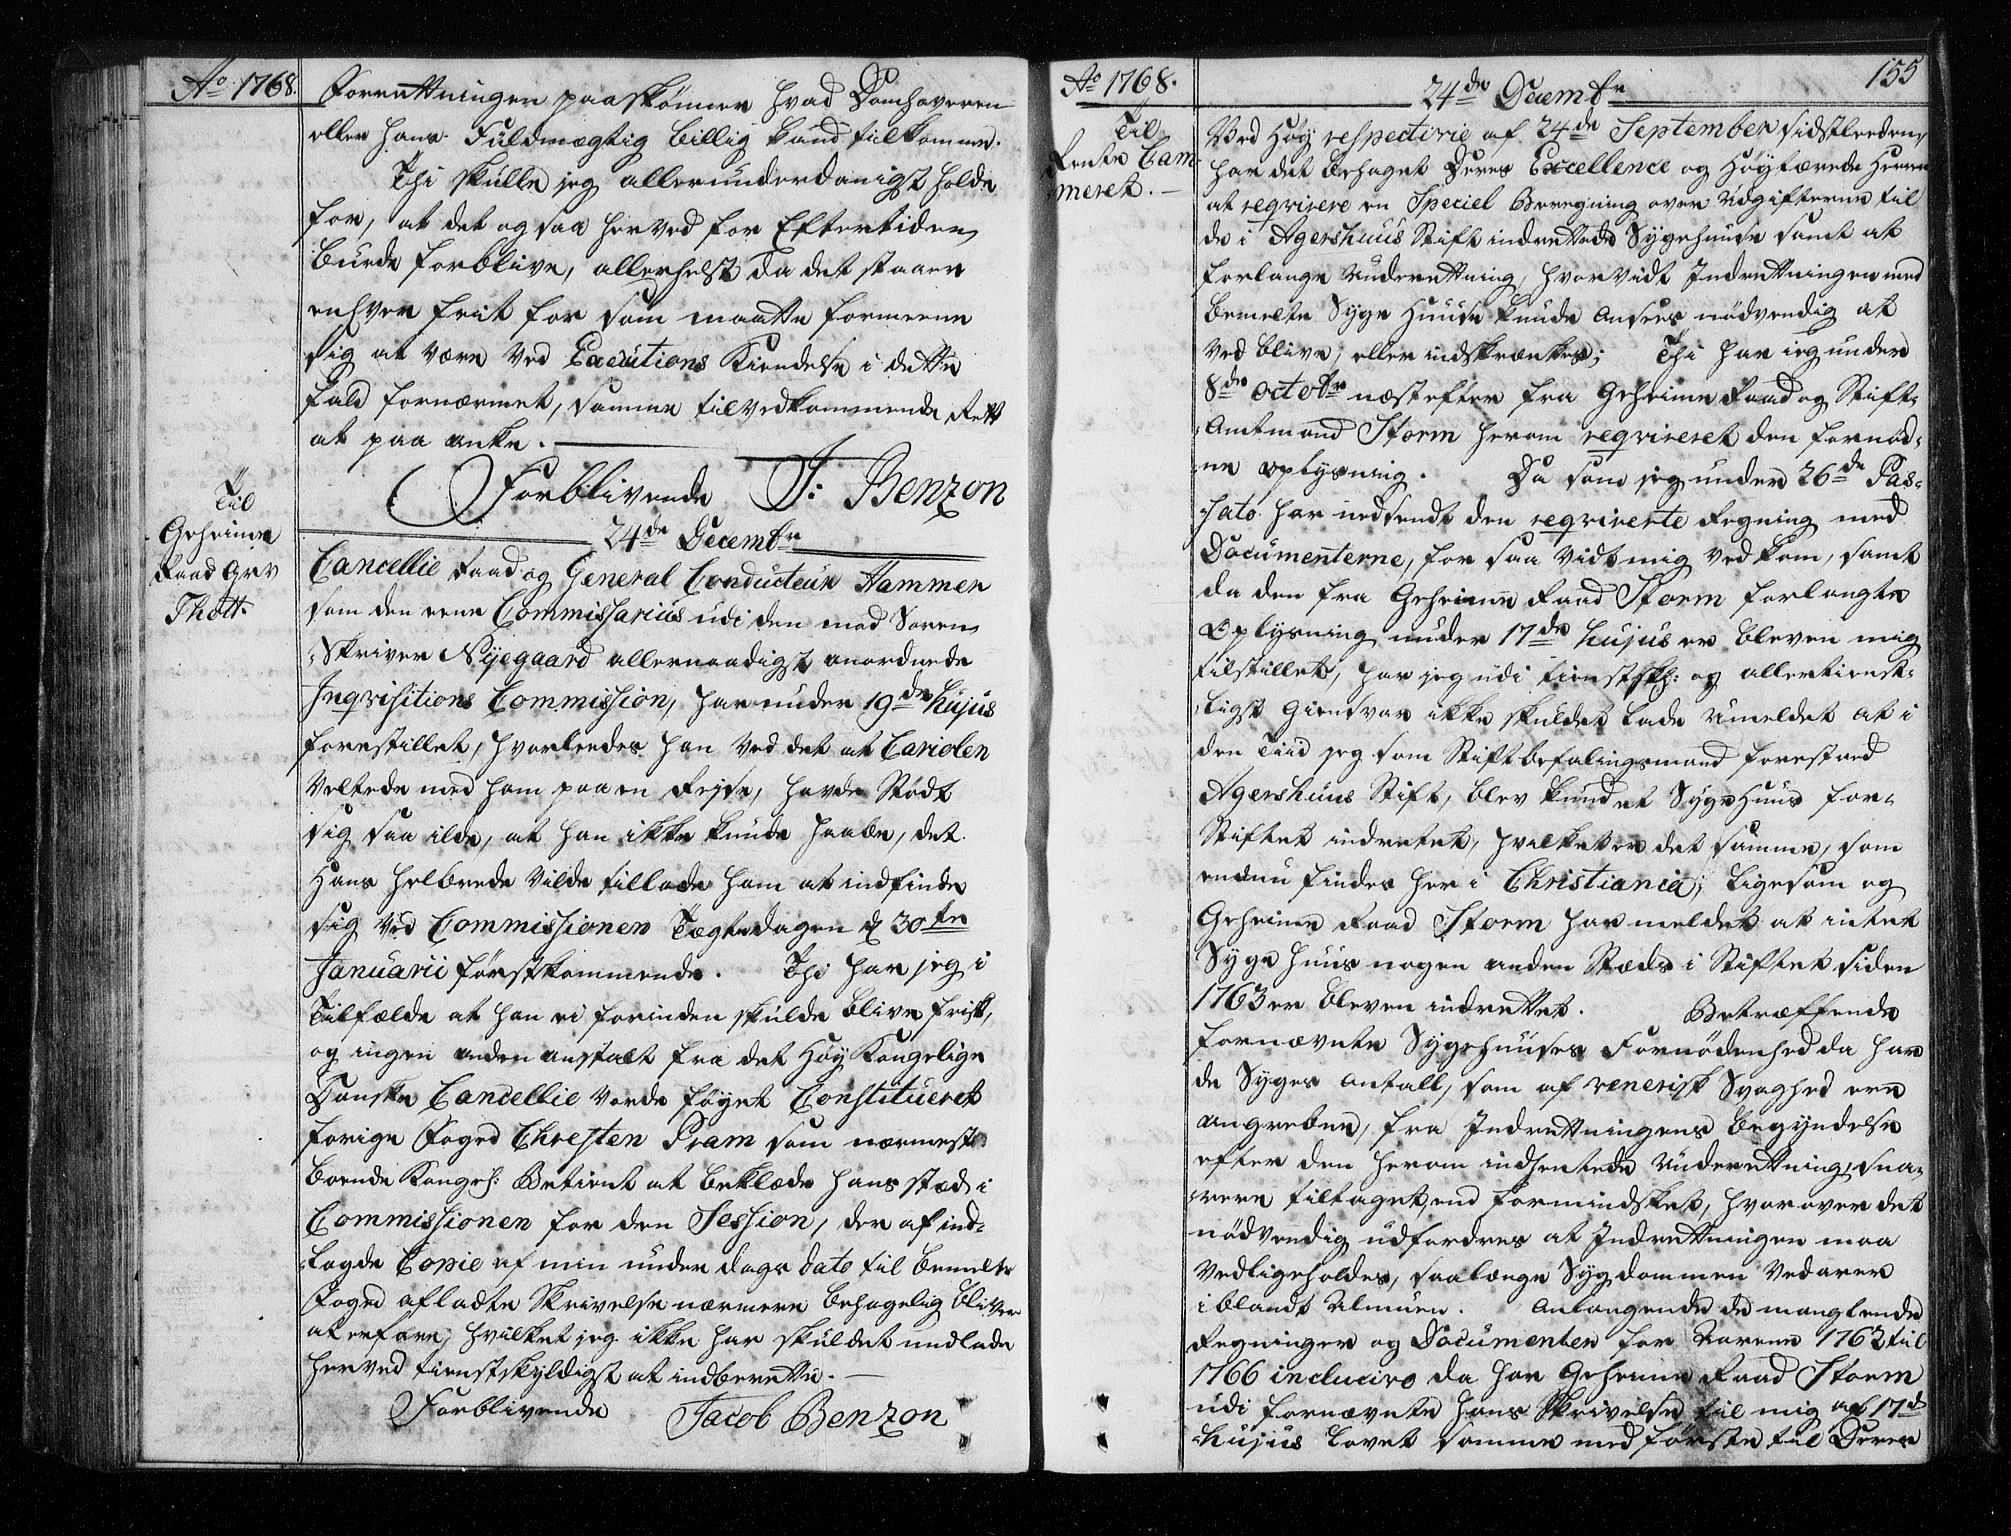 Ao 1768.
Forretningen paaskiønner hvad Domhaveren
eller hans Fuldmægtig billig kand tilkomme.
Thi skulle jeg allerunderdanigst holde
for, at det ogsaa herved for Eftertiden
burde forblive, allerhelst da det staaer
enhver frit for som maatte formeene
sig at være ved Executions Kiendelse i dette
fald fornærmet, samme til vedkommende Rett
at paa anke.
Forblivende J: Benzon
24de Decembr
Til
Geheime
Raad Grev
Thott.
Cancellie Raad og General Conducteur Hammer
som den eene Commissarius udi den mod Soren-
Skriver Nyegaard allernaadigst anordnede
Inqvisitions Commission, har under 19de hujus
forestillet, hvorledes han ved det at Cariolen
veltede med ham paa en Rejse, havde stødt
sig saa ilde, at han ikke kunde haabe, det
Hans helbrede vilde tillade ham at indfinde
sig ved Commissionen Tægtedagen d 30te
Januarii førstkommende. Thi har jeg i
Tilfælde at han ei forinden skulde blive frisk,
og ingen anden anstalt fra det Høy Kongelige
Danske Cancellie vorde føyet Constitueret
forige Foged Chresten Pram som nærmest
boende Kongel: Betient at beklæde hans stæd i
Commissionen for den Session, der af ind-
lagde Copie af min under dags dato til bemelte
Foged afladte Skrivelse nærmere behagelig bliver
at erfare, hvilket jeg ikke har skuldet undlade
herved tienstskyldigst at indberette.
Forblivende Jacob Benzon
Ao 1768.
24de Decembr
155
Til
Rente Cam
meret.
Ved Høy respective af 24de September sidstleeden,
har det behaget Deres Excellence og Høytærede Herrer
at reqvirere en Speciel Beregning over Udgifterne til
de i Agershuus Stift indrettede Sygehuuse samt at
forlange Underretning, hvorvidt Indretningen med
bemelte Syge Huuse kunde ansees nødvendig at
ved blive, eller indskrænkes; Thi har jeg under
8de octobr næstefter fra Geheime Raad og Stift-
Amtmand Storm herom reqvireret den fornød-
ne oplysning. Da som jeg under 26de Pas-
sato har nedsendt den reqvirerte Regning med
Documenterne, for saa vidt mig vedkom, samt
da den fra Geheime Raad Storm forlangte
Oplysning under 17de hujus er bleven mig
tilstillet, har jeg udi tienstskl: og allertienst-
ligst Giensvar ikke skuldet lade umeldet at i
den Tiid jeg som Stiftbefalingsmand forestoed
Agershuus Stift, blev kun det Syge Huus for
Stiftet indrettet, hvilket er det samme, som
endnu findes her i Christiania; ligesom og
Geheime Raad Storm har meldet at intet
Syge Huus nogen anden Stæds i Stiftet siden
1763 er bleven indrettet. Betræffende
fornævnte Sygehuuses Fornødenhed da har
de Syges Antall, som af venerisk Svaghed ere
angrebne, fra Indretningens begyndelse
efter den herom indhentede Underretning, sna-
rere tiltaget, end formindsket, hvorover det
nødvendig udfordres at Indretningen maa
vedligeholdes, saalænge Sygdommen vedvarer
iblandt Almuen. Anlangende de manglende
Regninger og Documenter for Aarene 1762 til
1766 inclucive da har Geheime Raad Storm
udi fornævnte hans Skrivelse til mig af 17de
hujus lovet samme med første til Deres